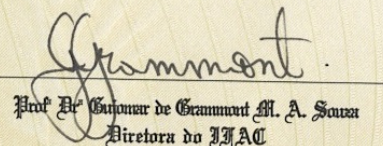 Grammont
Profª Drª Guiomar de Grammont M. A. Souza
Diretora do IFAC